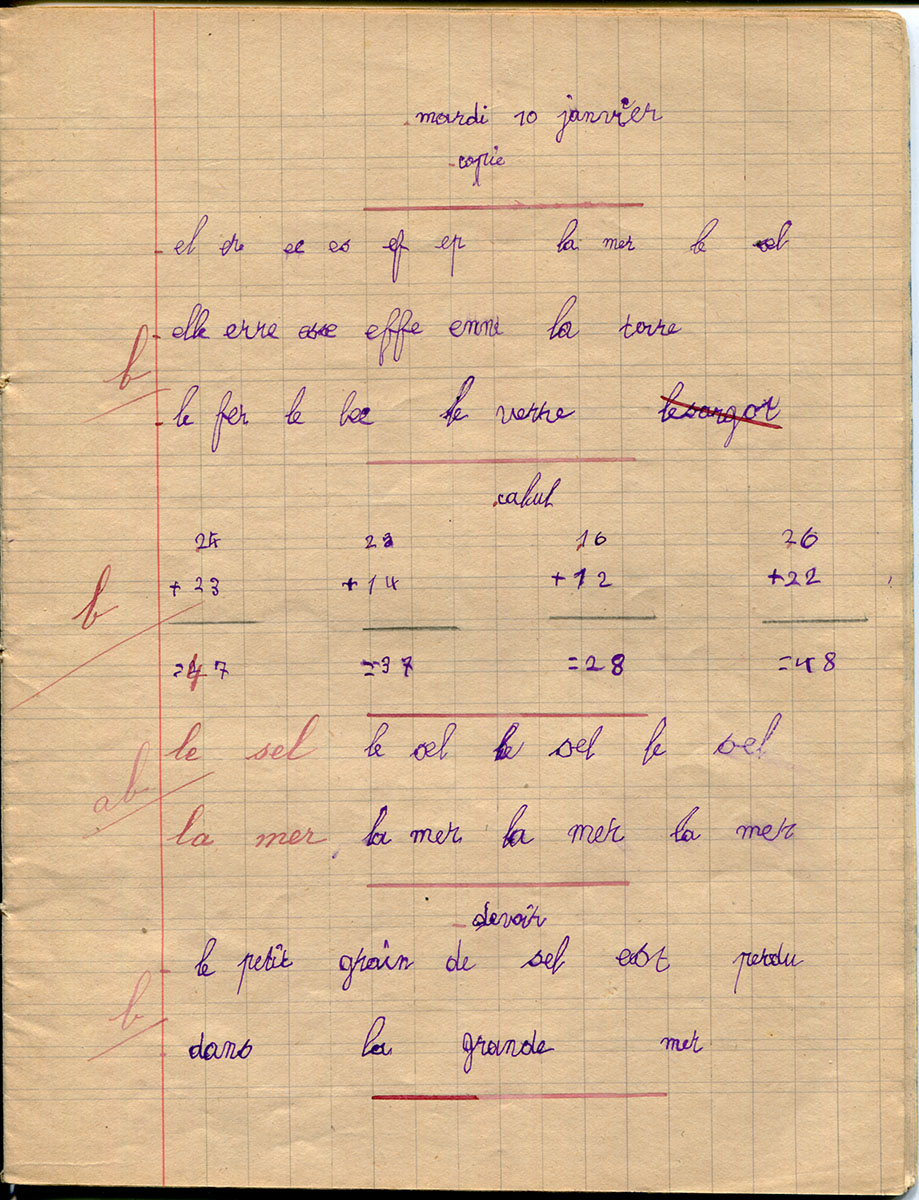 mardi 10 janvier
copie
el er ec es ef ep la mer le sel
elle erre esse effe enne la terre
b
le fer le bec le verre
calcul
24 23 16 26
+ 23 + 14 + 12 + 22
b
= 47 = 37 = 28 = 48
le sel le sel le sel le sel
ab
la mer la mer la mer la mer
devoir
le petit grain de sel est perdu
b
dans la grande mer